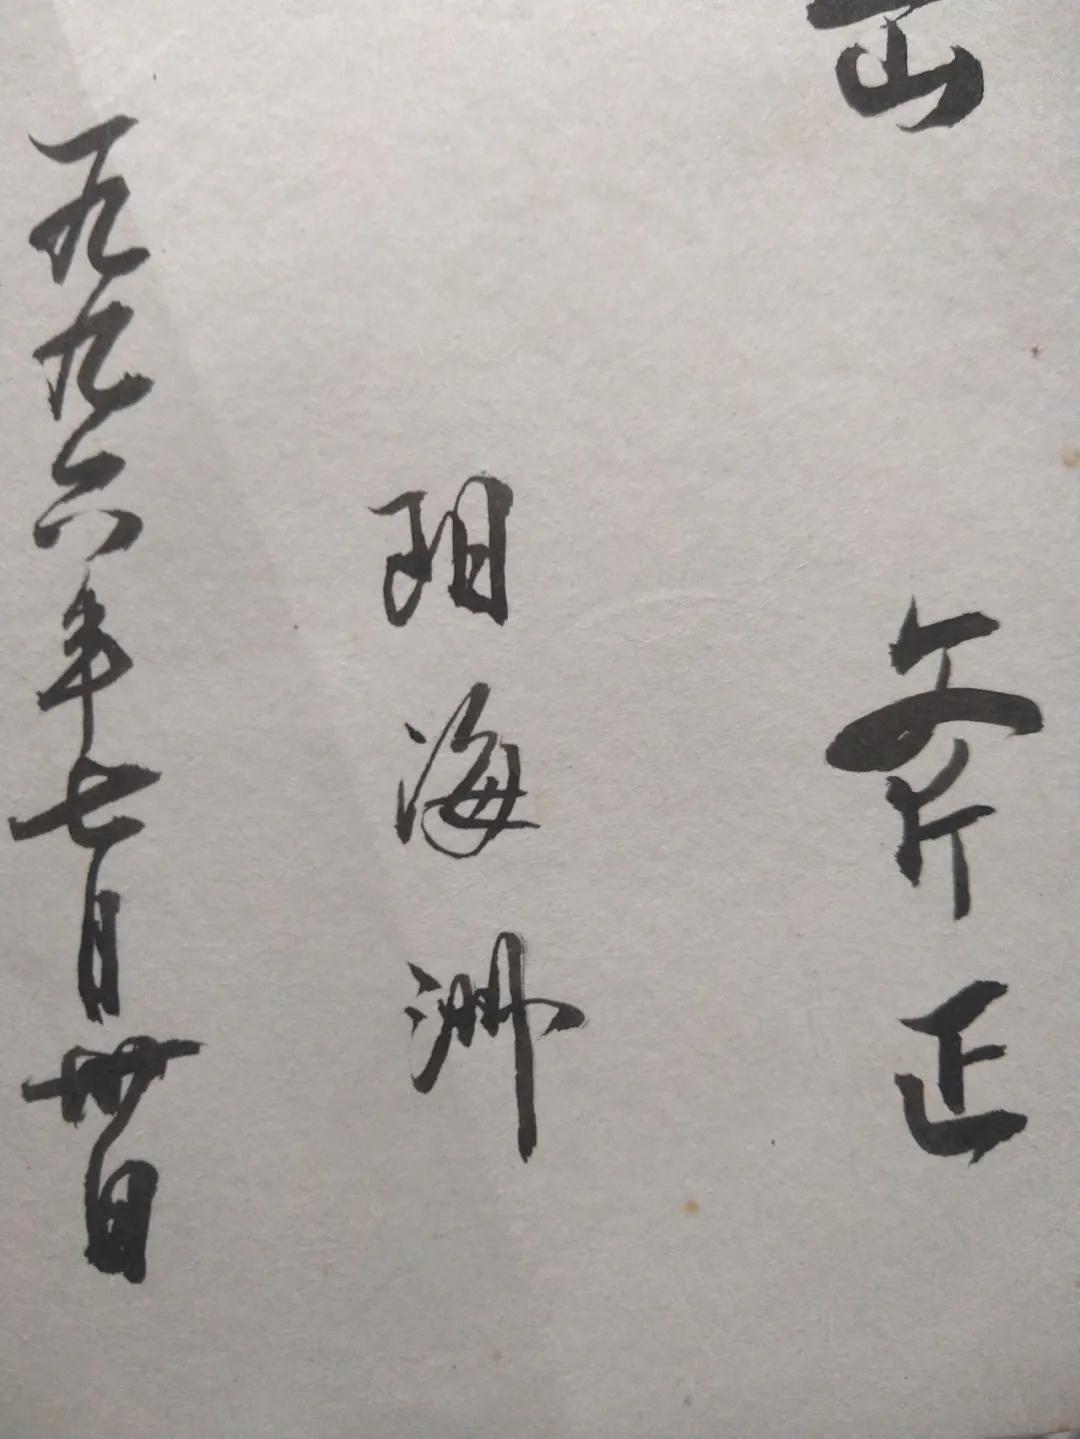 斧正
阳海洲
一九九六年七月卅日